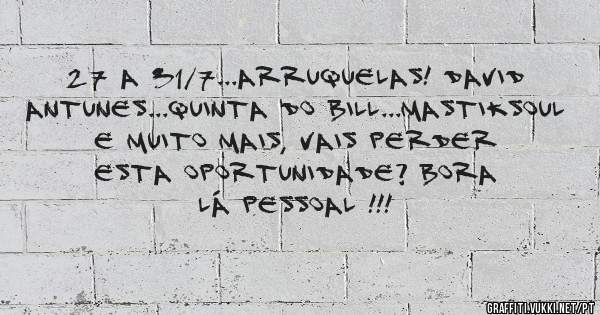 27 A 31/7...ARRUQUELAS! DAVID
ANTUNES...QUINTA DO BILL...MASTIKSOUL
E MUITO MAIS, VAIS PERDER
ESTA OPORTUNIDADE? BORA
LÁ PESSOAL !!!
GRAFFITI.VUKKI.NET/PT